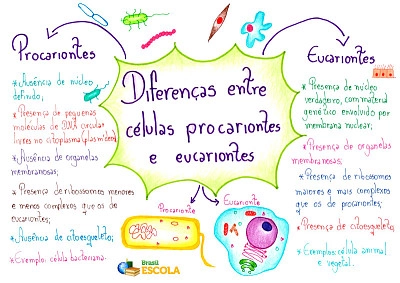 Procariontes
*Ausência de núcleo
definido;
*Presença de pequenas
moléculas de DNA circular
livres no citoplasma (plasmídeos)
*Ausência de organelas
membranosas;
*Presença de ribossomos menores
e menos complexos que os de
eucariontes;
*Ausência de citoesqueleto;
*Exemplo: célula bacteriana.
Diferenças entre
células procariontes
e eucariontes
Eucariontes
*Presença de núcleo
verdadeiro, com material
genético envolvido por
membrana nuclear;
*Presença de organelas
membranosas;
*Presença de ribossomos
maiores e mais complexos
que os de procariontes;
*Presença de citoesqueleto;
*Exemplos: célula animal
e vegetal.
Procarionte
Eucarionte
Brasil
ESCOLA